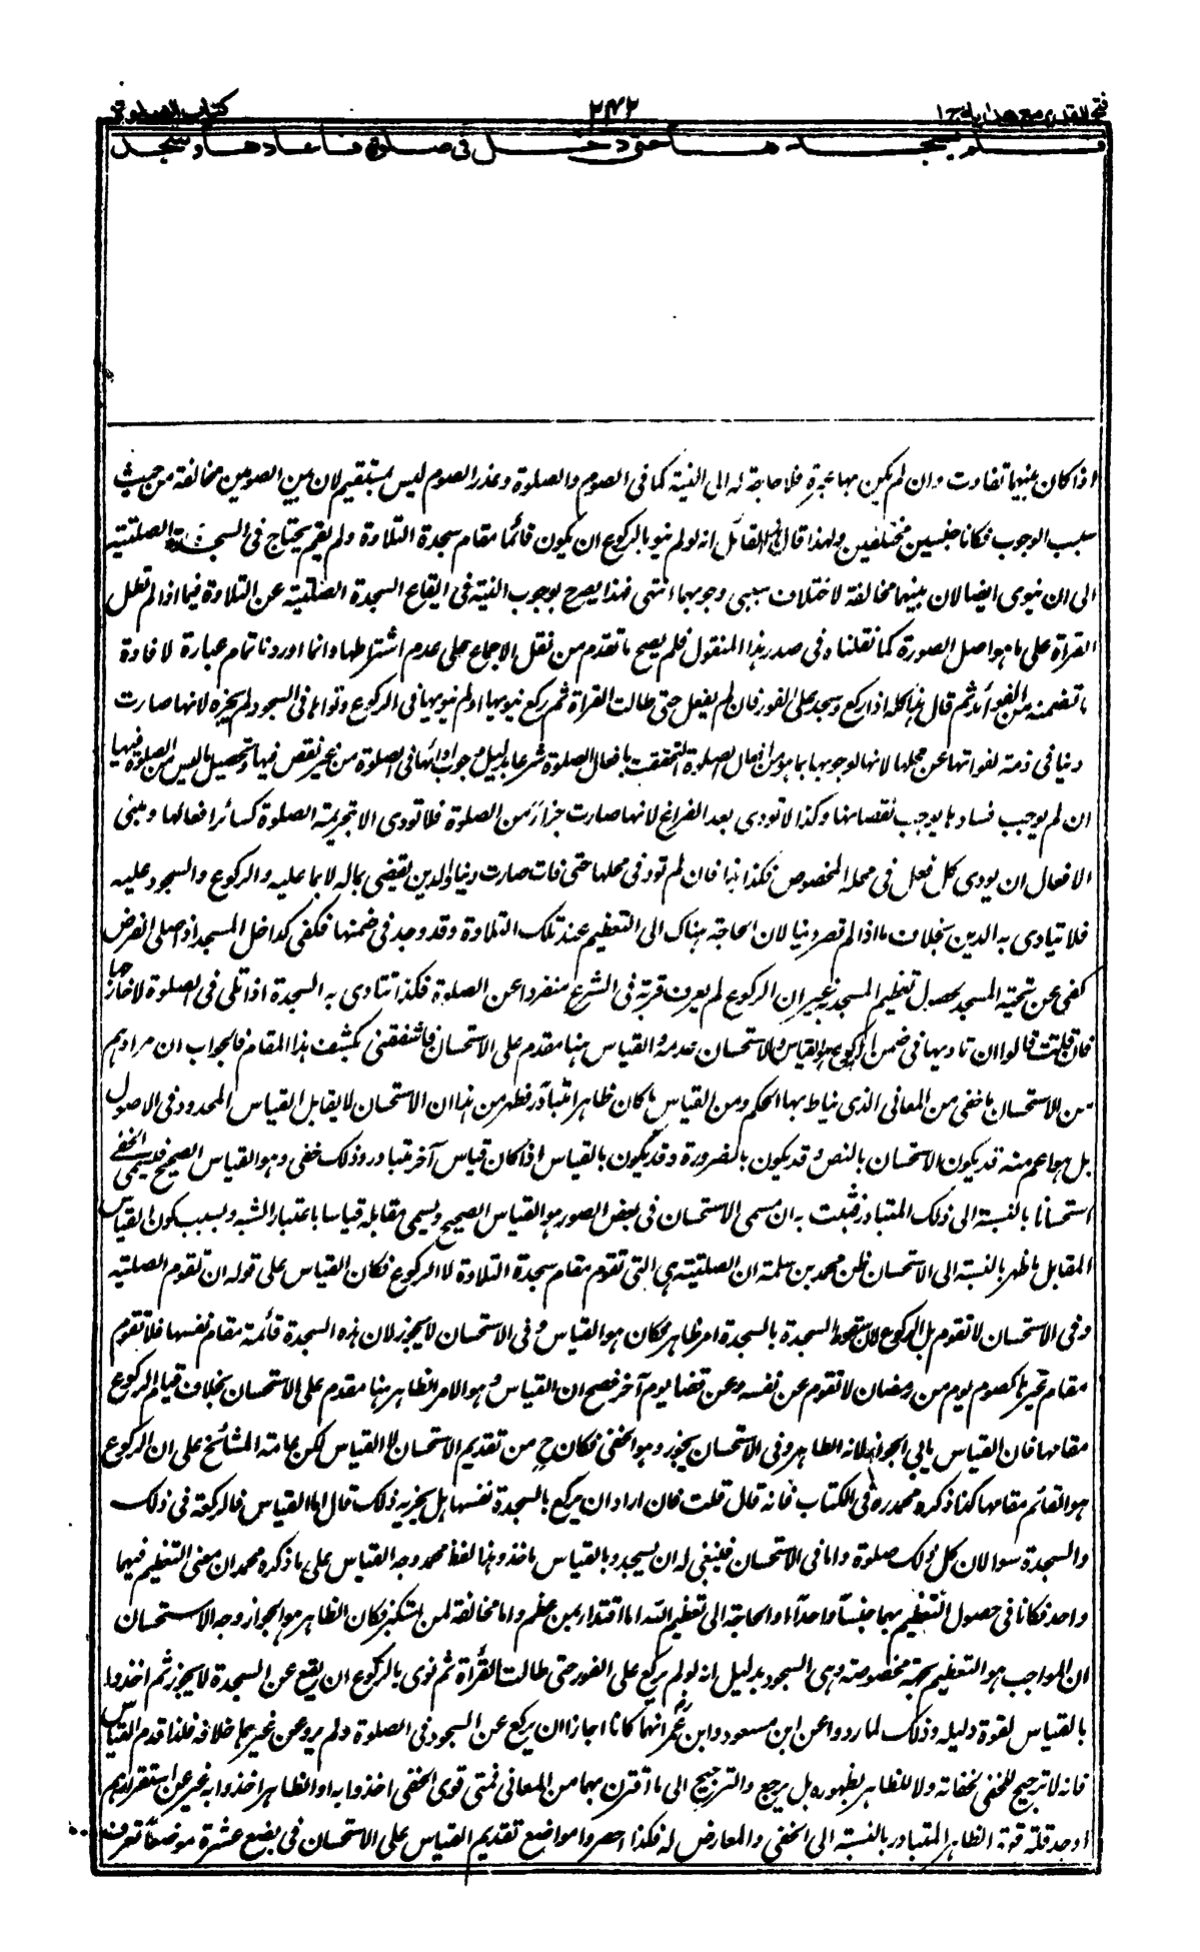 فتح القدير مع هدايه ج ١
٢٤٢
كتاب الصلوة
فلم يسجدها حتى دخل فى صلوة فاعادها وسجد
اذا كان بينهما تفاوت وان لم يكن بهما عبرة فلا حاجة له الى النية كما فى الصوم والصلوة وعذر الصوم ليس بمستقيم لان بين الصومين مخالفة من حيث
سبب الوجوب فكانا جنسين مختلفين ولهذا قال هذا القائل انه لو لم ينو بالركوع ان يكون قائما مقام سجدة التلاوة ولم يقم يحتاج فى السجدة الصلتية
الى ان ينوى ايضا لان بينهما مخالفة لاختلاف سببى وجوبهما انتهى فهذا يصرح بوجوب النية فى ايقاع السجدة الصلتية عن التلاوة فيما اذا لم تطل
القراة على ما هو اصل الصورة كما نقلناه فى صدر هذا المنقول فلم يصح ما تقدم من نقل الاجماع على عدم اشتراطها وانما اوردنا تمام عبارة لافادة
ما تضمنه من الفوائد ثم قال هذا كله اذا ركع وسجد على الفور فان لم يفعل حتى طالت القراة ثم ركع ينويها او لم ينويها فى الركوع ونواها فى السجود لم يجزه لانها صارت
دينا فى ذمته لفواتها عن محلها لانها لوجوبها بما هو من افعال الصلوة التحقت بافعال الصلوة شرعا بدليل وجوب ادائها فى الصلوة من غير نقص فيها وتحصيل ما ليس من الصلوة فيها
ان لم يوجب فسادها يوجب نقصانها وكذا لا تودى بعد الفراغ لانها صارت جزأ من الصلوة فلا تودى الا بتحريمة الصلوة كسائر افعالها ومبنى
الافعال ان يودى كل فعل فى محله المخصوص فكذا هذا فان لم تود فى محلها حتى فات صارت دينا والدين يقضى بماله لا بما عليه والركوع والسجود عليه
فلا يتادى به الدين بخلاف ما اذا لم تصر دينا لان الحاجة هناك الى التعظيم عند تلك التلاوة وقد وجد فى ضمنها فكفى كداخل المسجد اذا صلى الفرض
كفى عن تحية المسجد لحصول تعظيم المسجد غير ان الركوع لم يعرف قربة فى الشرع منفردا عن الصلوة فكذا تتادى به السجدة اذا تلى فى الصلوة لا خارجها
فان قلت قالوا ان تاديها فى ضمن الركوع هو القياس والاستحسان عدمه والقياس هنا مقدم على الاستحسان فاستفقنى كشف هذا المقام فالجواب ان مرادهم
من الاستحسان ما خفى من المعانى الذى يناط بها الحكم ومن القياس ما كان ظاهرا متبادر فظهر من هذا ان الاستحسان لا يقابل القياس المحدود فى الاصول
بل هو اعم منه قد يكون الاستحسان بالنص وقد يكون بالضرورة وقد يكون بالقياس اذا كان قياس آخر متبادر وذلك خفى وهو القياس الصحيح فيسمى الخفى
استحسانا بالنسبة الى ذلك المتبادر فثبت به ان مسمى الاستحسان فى بعض الصور هو القياس الصحيح ويسمى مقابله قياسا باعتبار الشبه وبسبب كون القياس
المقابل ما ظهر بالنسبة الى الاستحسان ظن محمد بن سلمة ان الصلتية هى التى تقوم مقام سجدة التلاوة لا الركوع فكان القياس على قوله ان تقوم الصلتيه
وفى الاستحسان لا تقوم بل الركوع لان سقوط السجدة بالسجدة امر ظاهر فكان هو القياس وفى الاستحسان لا يجوز لان هذه السجدة قائمة مقام نفسها فلا تقوم
مقام غيرها كصوم يوم من رمضان لا تقوم عن نفسه وعن قضا يوم آخر فصح ان القياس وهو الامر الظاهر هنا مقدم على الاستحسان بخلاف قيام الركوع
مقامها فان القياس يابى الجواز لانه الظاهر وفى الاستحسان يجوز وهو الخفى فكان ح من تقديم الاستحسان لا القياس لكن عامة المشائخ على ان الركوع
هو القائم مقامها كذا ذكره محمد رح فى الكتاب فانه قال قلت فان اراد ان يركع بالسجدة نفسها هل يجزيه ذلك قال اما القياس فالركعة فى ذلك
والسجدة سوا لان كل ذلك صلوة واما فى الاستحسان فينبغى له ان يسجد وبالقياس ناخذ وهذا لفظ محمد وجه القياس على ما ذكره محمد ان معنى التعظيم فيهما
واحد فكانا فى حصول التعظيم بهما جنسا واحدا والحاجة الى تعظيم الله اما اقتداء بمن عظم واما مخالفة لمن استكبر فكان الظاهر هو الجواز وجه الاستحسان
ان الواجب هو التعظيم بجهة مخصوصة وهى السجود بدليل انه لو لم يركع على الفور حتى طالت القرأة ثم نوى بالركوع ان يقع عن السجدة لا يجوز ثم اخذوا
بالقياس لقوة دليله وذلك لما رووا عن ابن مسعود وابن عمر رض انهما كانا اجازا ان يركع عن السجود فى الصلوة ولم يرو عن غيرهما خلافه فلذا قدم القياس
فانه لا ترجيح للخفى لخفائه ولا للظاهر لظهوره بل يرجع والترجيح الى ما اقترن بهما من المعانى فمتى قوى الخفى اخذوا به او الظاهر اخذوا به غير ان استقراءهم
اوجد قلة قوة الظاهر المتبادر بالنسبة الى الخفى والمعارض له فكذا حصروا مواضع تقديم القياس على الاستحسان فى بضع عشرة موضعا تعرف